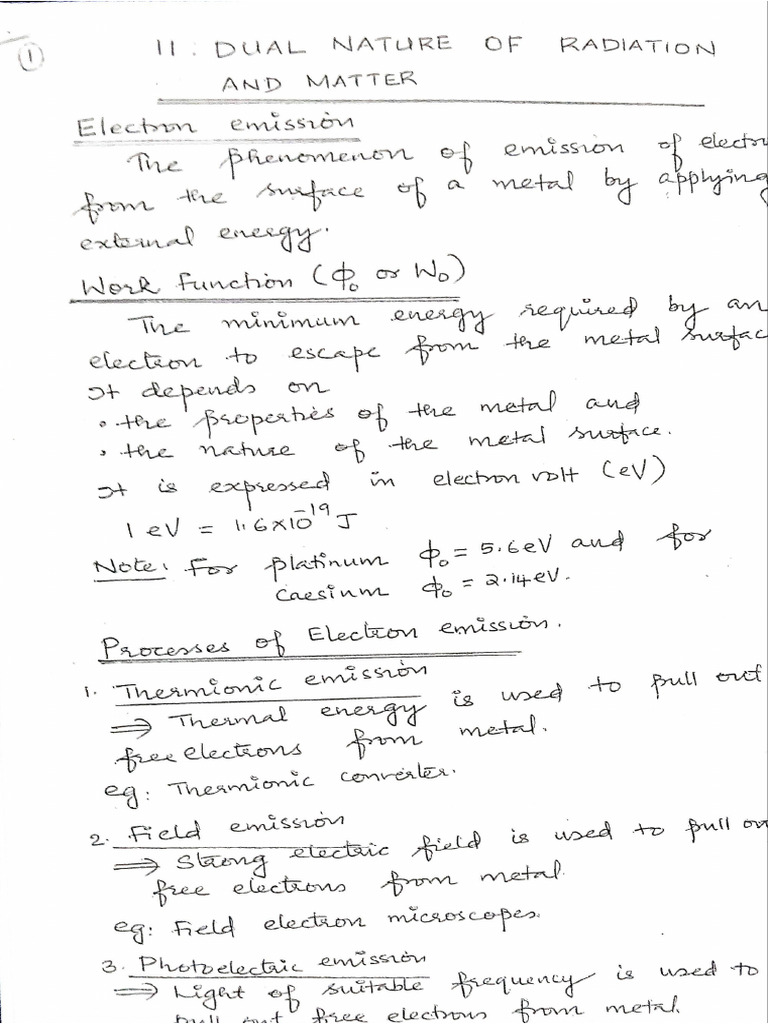 1
11. DUAL NATURE OF RADIATION
AND MATTER
Electron emission
The phenomenon of emission of electr
from the surface of a metal by applying
external energy.
Work function (ϕ₀ or W₀)
The minimum energy required by an
electron to escape from the metal surfac
It depends on
• the properties of the metal and
• the nature of the metal surface.
It is expressed in electron volt (eV)
1 eV = 1.6×10⁻¹⁹ J
Note: For platinum ϕ₀ = 5.6eV and for
caesium ϕ₀ = 2.14eV.
Processes of Electron emission.
1. Thermionic emission
⇒ Thermal energy is used to pull out
free electrons from metal.
eg: Thermionic converter.
2. Field emission
⇒ Strong electric field is used to pull ou
free electrons from metal.
eg: Field electron microscopes.
3. Photoelectric emission
⇒ Light of suitable frequency is used to
pull out free electrons from metal.